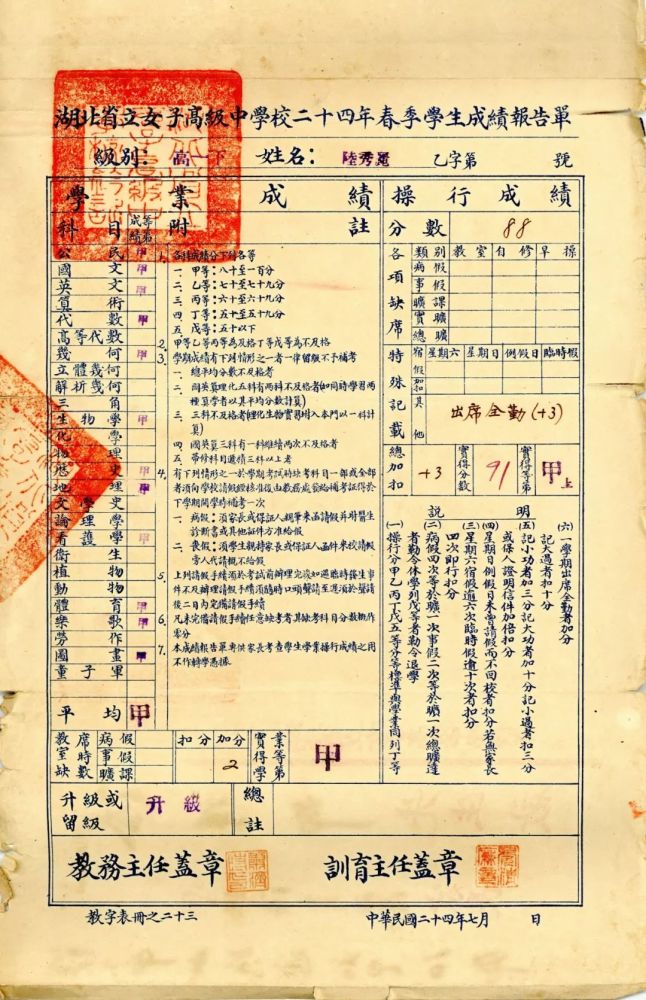 湖北省立女子高級中學校二十四年春季學生成績報告單
級別：高一下 姓名：陸秀 乙字第 號
學業成績
科目 成績等第 附註
公民 甲
國文 甲
英文 甲
算術
代數 甲
高等代數
幾何 甲
立體幾何
解析幾何
三角
生物學 甲
化學
物理
歷史 甲
地理 甲
文學史
論理學
看護學
衛生
植物
動物
體育 甲
樂歌 甲
勞作
圖畫 甲
童子軍
平均 甲
1. 各科成績分下列各等
一 甲等：八十至一百分
二 乙等：七十至七十九分
三 丙等：六十至六十九分
四 丁等：五十至五十九分
五 戊等：五十以下
2. 甲等乙等丙等為及格丁等戊等為不及格
3. 學期成績有下列情形之一者一律留級不予補考
一 總平均分數不及格者
二 國英算理化五科有兩科不及格者(如同時學習兩
種算學者以其平均分數計算)
三 三科不及格者(理化生物實習附入本門以一科計
算)
四 國英算三科有一科維續兩次不及格者
五 帶修科目邁續三科以上者
4. 有下列情形之一於學期考試時缺考科目一部或全部
者須向學校請假經核准後由教務處發給補考証得於
下學期開學時補考一次
一 病假：須家長或保証人親筆來函請假并附醫生
診斷書或其他証件方准給假
二 喪假：須學生親持家長或保証人函件來校請假
旁人代請概不給假
5. 上列請假手續須於考試前辦理完竣如遇臨時發生事
件不及辦理請假手續須臨時口頭聲請至遲須於聲請
後三日內完備請假手續
6. 凡未完備請假手續任意缺考者其缺考科目分數概作
零分
7. 本成績報告單專供家長考查學生學業操行成績之用
不作轉學憑據
教室缺席時數 病假 事假 曠課
扣分 加分 2
實得學業等第 甲
操行成績
分數 88
各項缺席 類別 教室 自修 早操
病假
事假
曠課
實曠
總曠
特殊記載 宿假扣 星期六 星期日 例假日 臨時假
其他 出席全勤(+3)
總加扣 +3 實得分數 91 實得等第 甲上
說明
(一)操行分甲乙丙丁戊五等分等標準與學業同列丁等
者勤令休學列戊等者勤令退學
(二)病假四次等於曠一次事假二次等於曠一次總曠達
四次即行扣分
(三)星期六宿假逾六次臨時假逾十次者扣分
(四)星期日例假日未曾請假而不回校者扣分若無家長
或保人證明信件加倍扣分
(五)記小功者加三分記大功者加十分記小過者扣三分
記大過者扣十分
(六)一學期出席全勤者加分
升級或留級 升級 總註
教務主任蓋章 訓育主任蓋章
教字表冊之二十三 中華民國二十四年七月 日